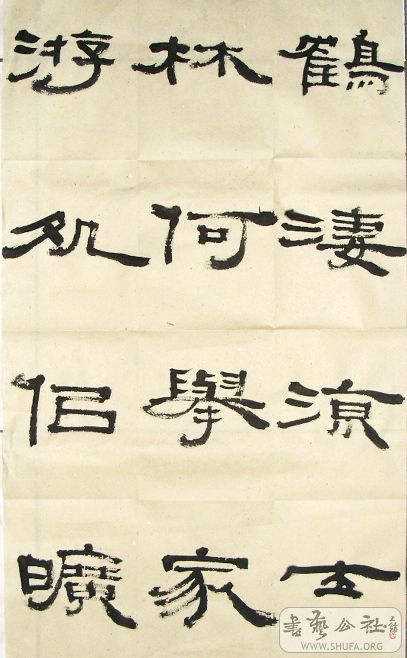 鶴淒涼士
林何舉家
游処侣曠
書藝公社
WWW.SHUFA.ORG